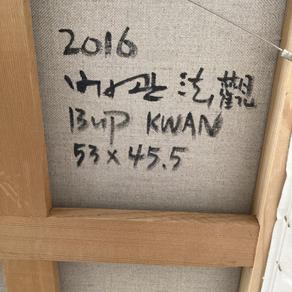 2016
법관 法觀
Bup KWAN
53 x 45.5